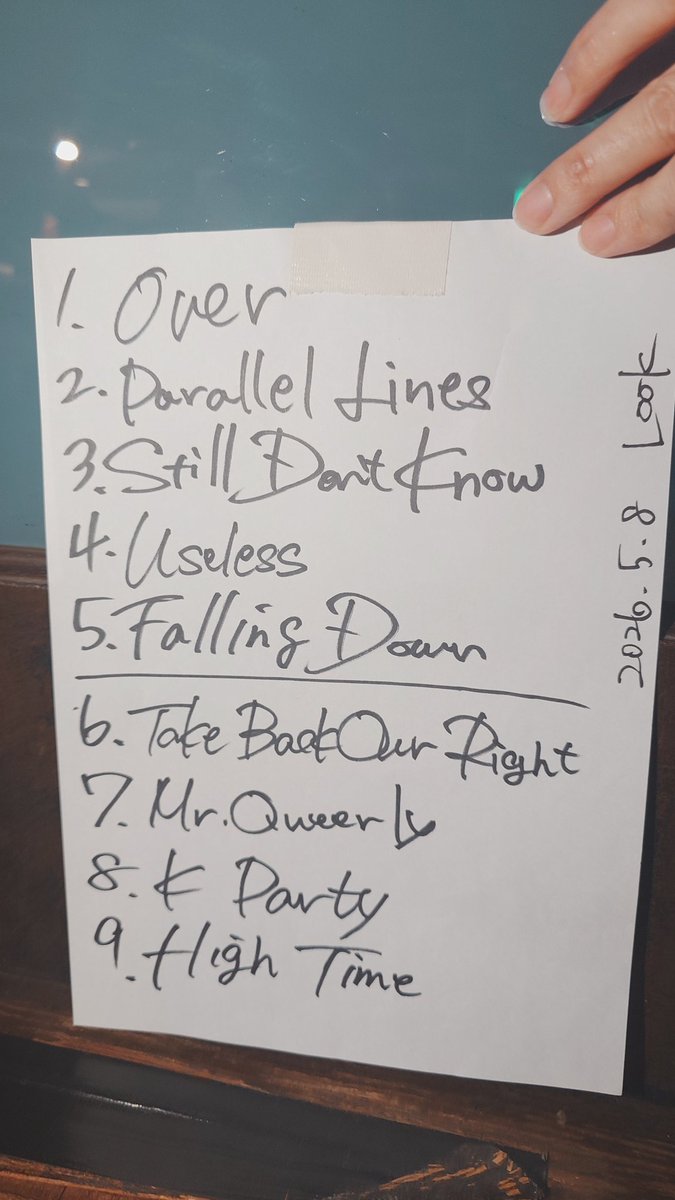 1. Over
2. Parallel Lines
3. Still Don't Know
4. Useless
5. Falling Down
6. Take Back Our Right
7. Mr. Qweerly
8. K Party
9. High Time
2026.5.8 Look